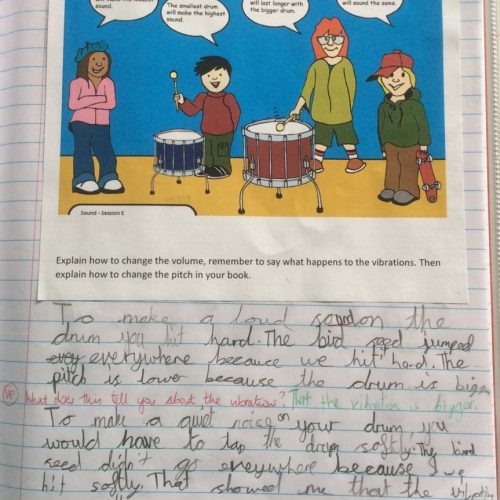 sound.
The smallest drum
will make the highest
sound.
will last longer with
the bigger drum.
will sound the same.
Sound - Session E
Explain how to change the volume, remember to say what happens to the vibrations. Then
explain how to change the pitch in your book.
To make a loud sound on the
drum you hit hard. The bird seed jumped
everywhere because we hit hard. The
pitch is lower because the drum is bigger
VF What does this tell you about the vibrations? That the vibration is bigger.
To make a quiet noise on your drum you
would have to tap the drum softly. The bird
seed didn't go everywhere because I we
hit softly. That showed me that the